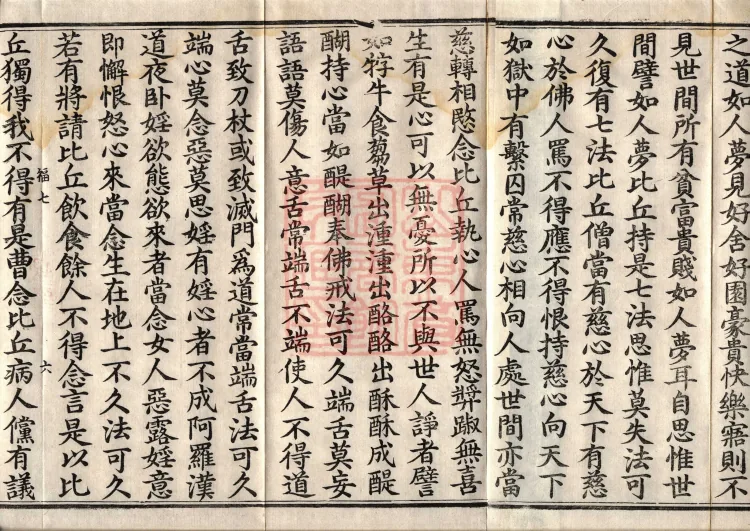 之道如人夢見好舍好園豪貴快樂寤則不
見世間所有貧富貴賤如人夢耳自思惟世
間譬如人夢比丘持是七法思惟莫失法可
久復有七法比丘僧當有慈心於天下有慈
心於佛人罵不得應不得恨持慈心向天下
如獄中有繫囚常慈心相向人處世間亦當
慈轉相愍念比丘執心人罵無怒㢡踧無喜
生有是心可以無憂所以不與世人諍者譬
如牸牛食芻草出湩湩出酪酪出酥酥成醍
醐持心當如醍醐奉佛戒法可久端舌莫妄
語語莫傷人意舌常端舌不端使人不得道
舌致刀杖或致滅門爲道常當端舌法可久
端心莫念惡莫思婬有婬心者不成阿羅漢
道夜卧婬欲態欲來者當念女人惡露婬意
即懈恨怒心來當念生在地上不久法可久
福七 六
若有將請比丘飲食餘人不得念言是以比
丘獨得我不得有是曹念比丘病人儻有議